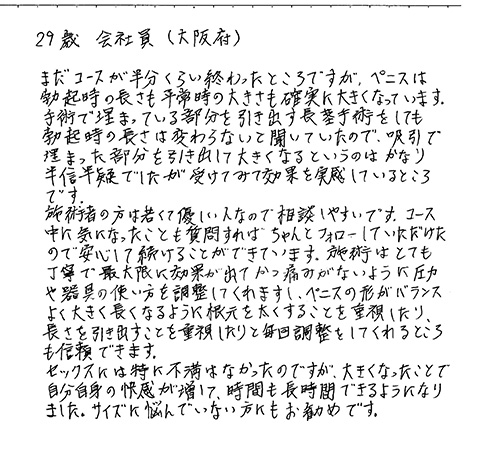 29歳 会社員 (大阪府)
まだコースが半分くらい終わったところですが、ペニスは
勃起時の長さも平常時の大きさも確実に大きくなっています。
手術で埋まっている部分を引き出す長茎手術をしても
勃起時の長さは変わらないと聞いていたので、吸引で
埋まった部分を引き出して大きくなるというのはかなり
半信半疑でしたが受けてみて効果を実感しているところ
です。
施術者の方は若くて優しい人なので相談しやすいです。コース
中に気になったことも質問すればちゃんとフォローしていただけた
ので安心して続けることができています。施術はとても
丁寧で最大限に効果が出てかつ痛みがないように圧力
や器具の使い方を調整してくれますし、ペニスの形がバランス
よく大きく長くなるように根元を太くすることを重視したり、
長さを引き出すことを重視したりと毎回調整をしてくれるところ
も信頼できます。
セックスには特に不満はなかったのですが、大きくなったことで
自分自身の快感が増して、時間も長時間できるようになり
ました。サイズに悩んでいない方にもお勧めです。